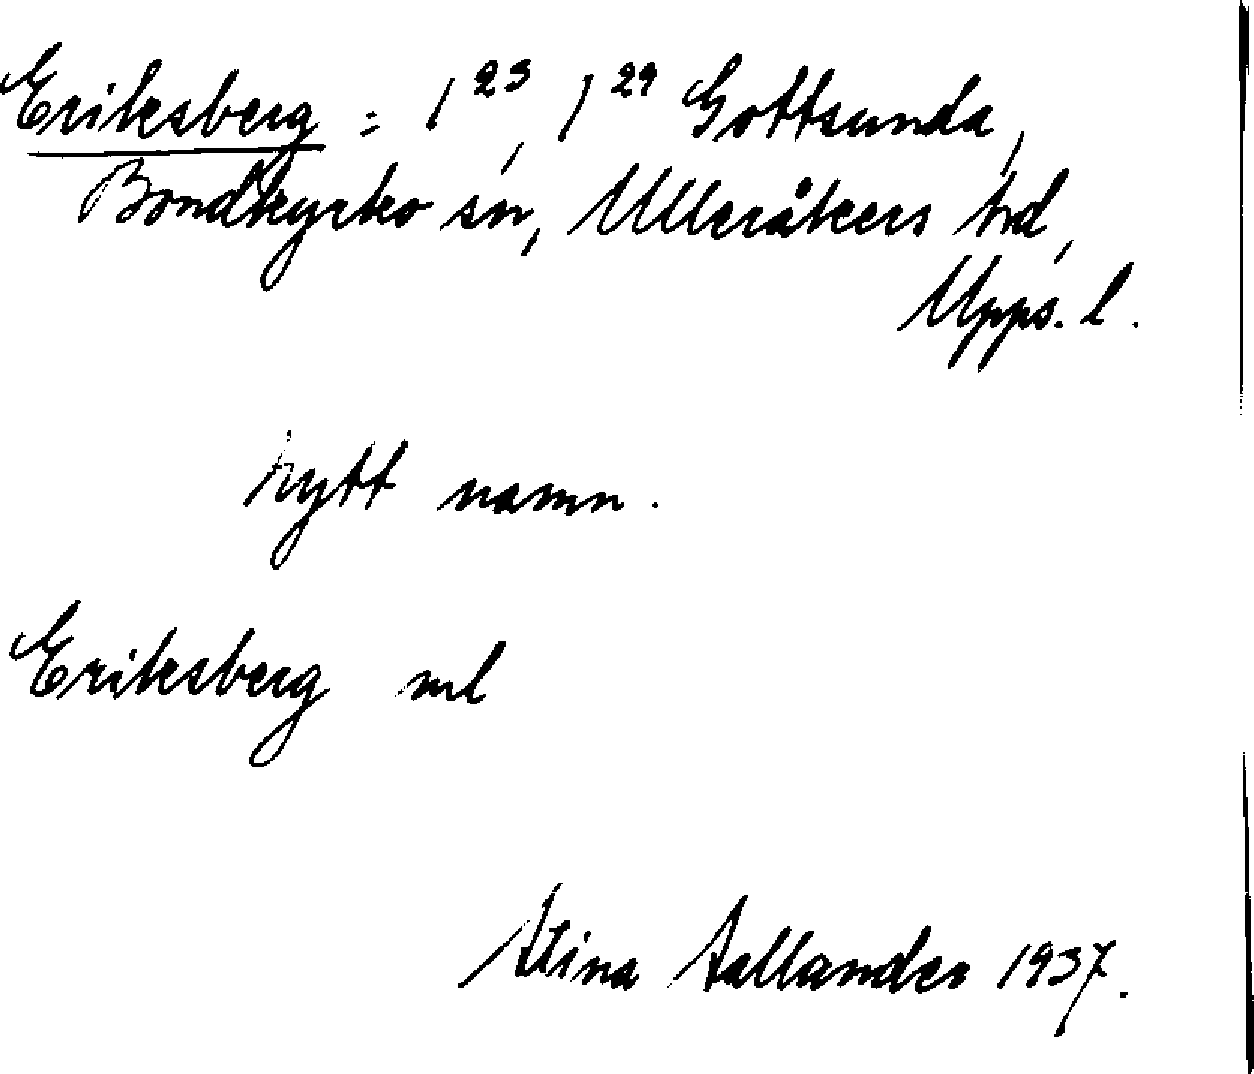 Eriksberg = 1²³, 1²⁹ Gottsunda,
Bondkyrko sn, Ulleråkers hd,
Upps. l.
nytt namn.
Eriksberg ml
Stina Sallander 1937.